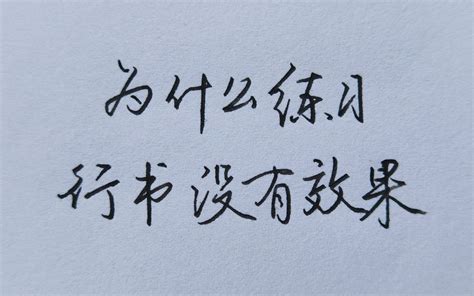 为什么练习
行书没有效果